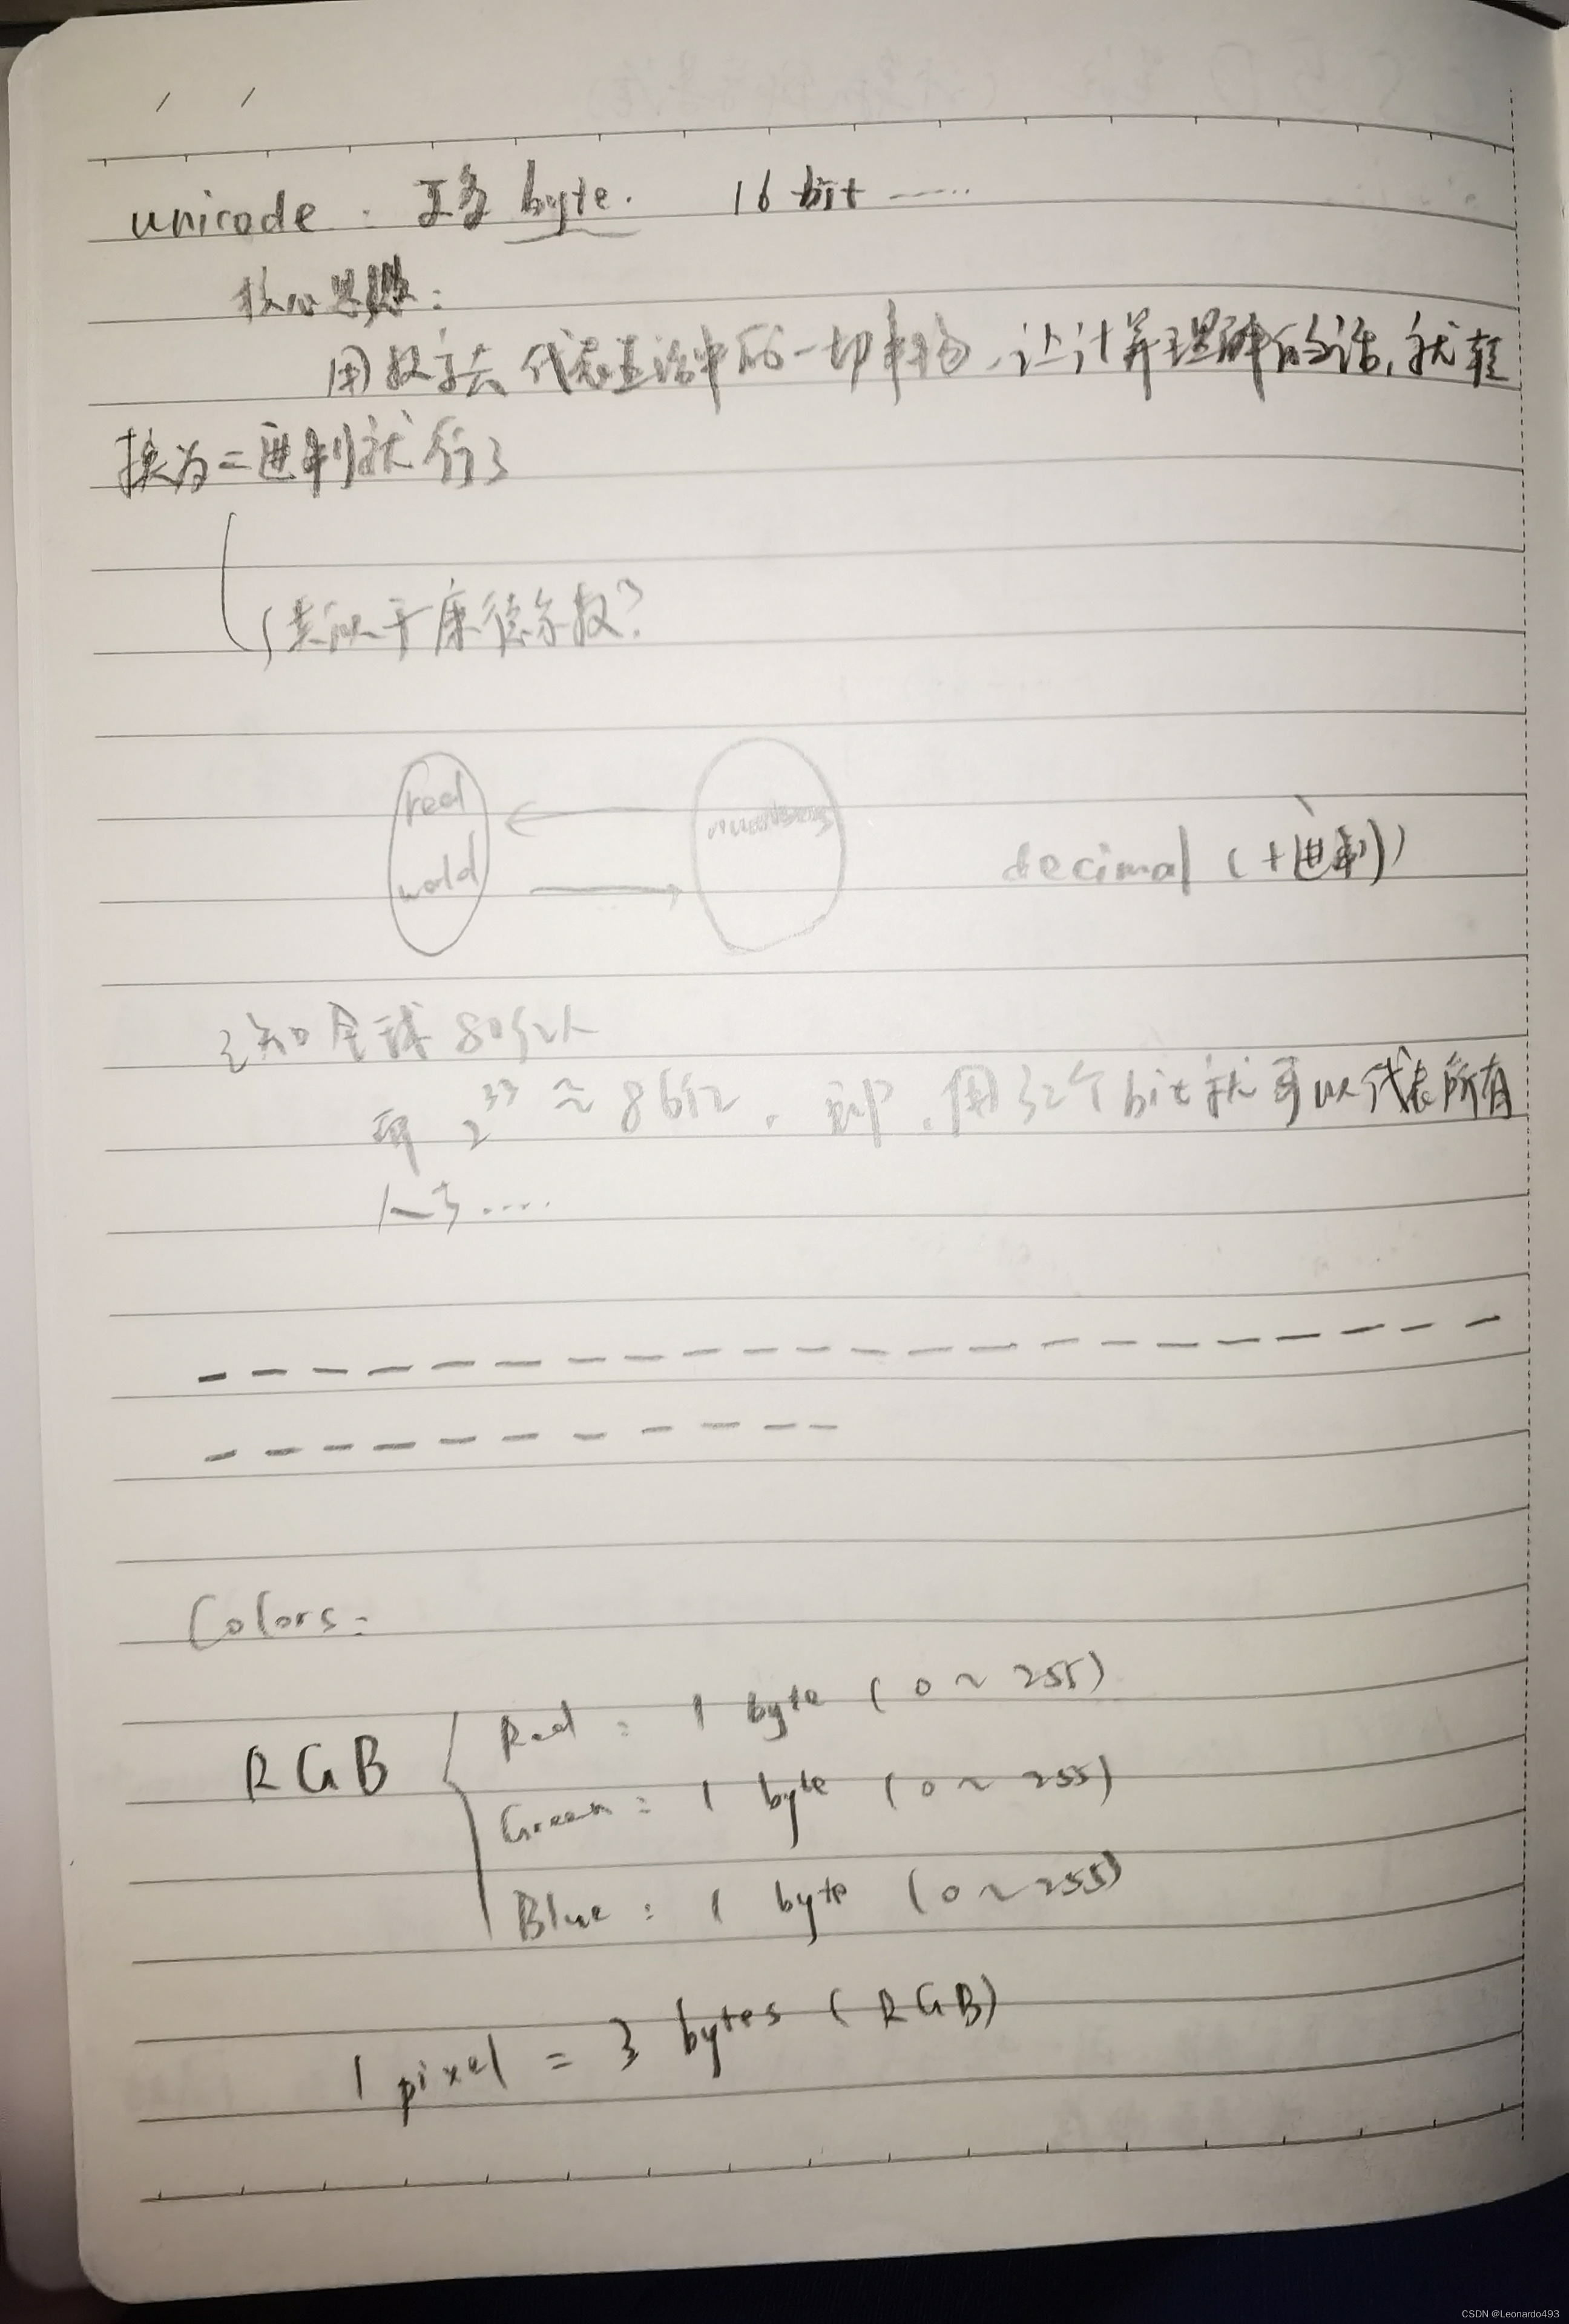 unicode : 更多 byte. 16 bit ......
核心思想:
用数字去代表生活中的一切事物,让计算理解的话,就转
换为二进制就行了
(类似于康德尔数?
real
world
numbers
decimal (十进制)
已知全球 80亿人
而 2³³ ≈ 86亿, 即, 用32个bit就可以代表所有
人了.....
Colors:
RGB
Red : 1 byte (0 ~ 255)
Green : 1 byte (0 ~ 255)
Blue : 1 byte (0 ~ 255)
1 pixel = 3 bytes (RGB)
CSDN @Leonardo493